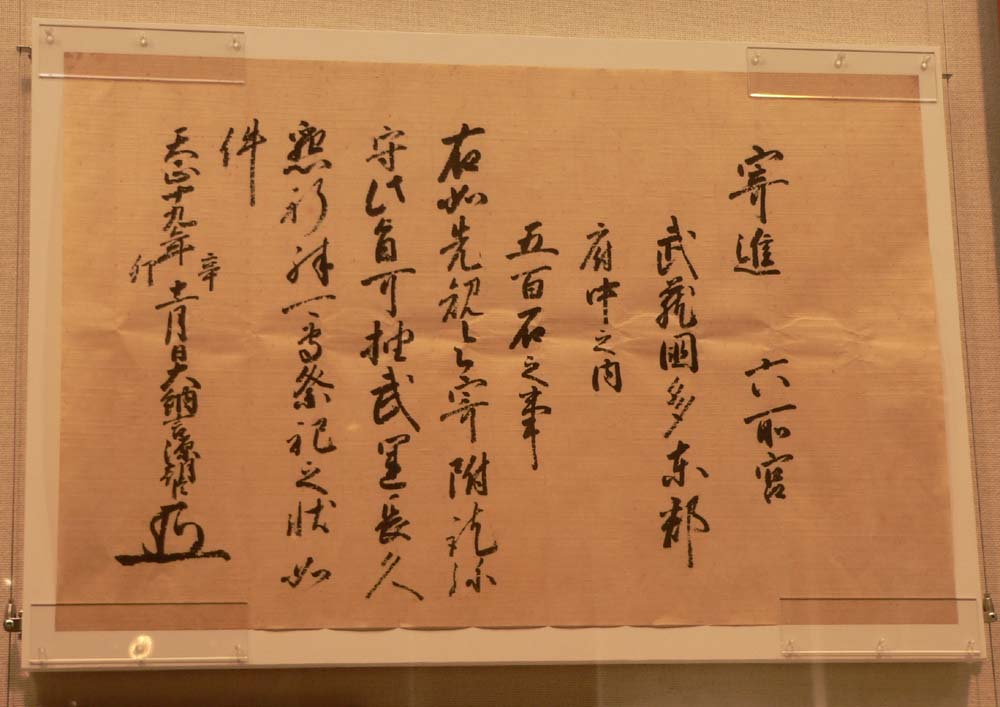 寄進　六所宮
武蔵國多東郡
府中之内
五百石之事
右如先規令寄附訖弥
守此旨可抽武運長久
懇祈殊可専祭祀之状如
件
天正十九年辛卯十一月日大納言源朝臣